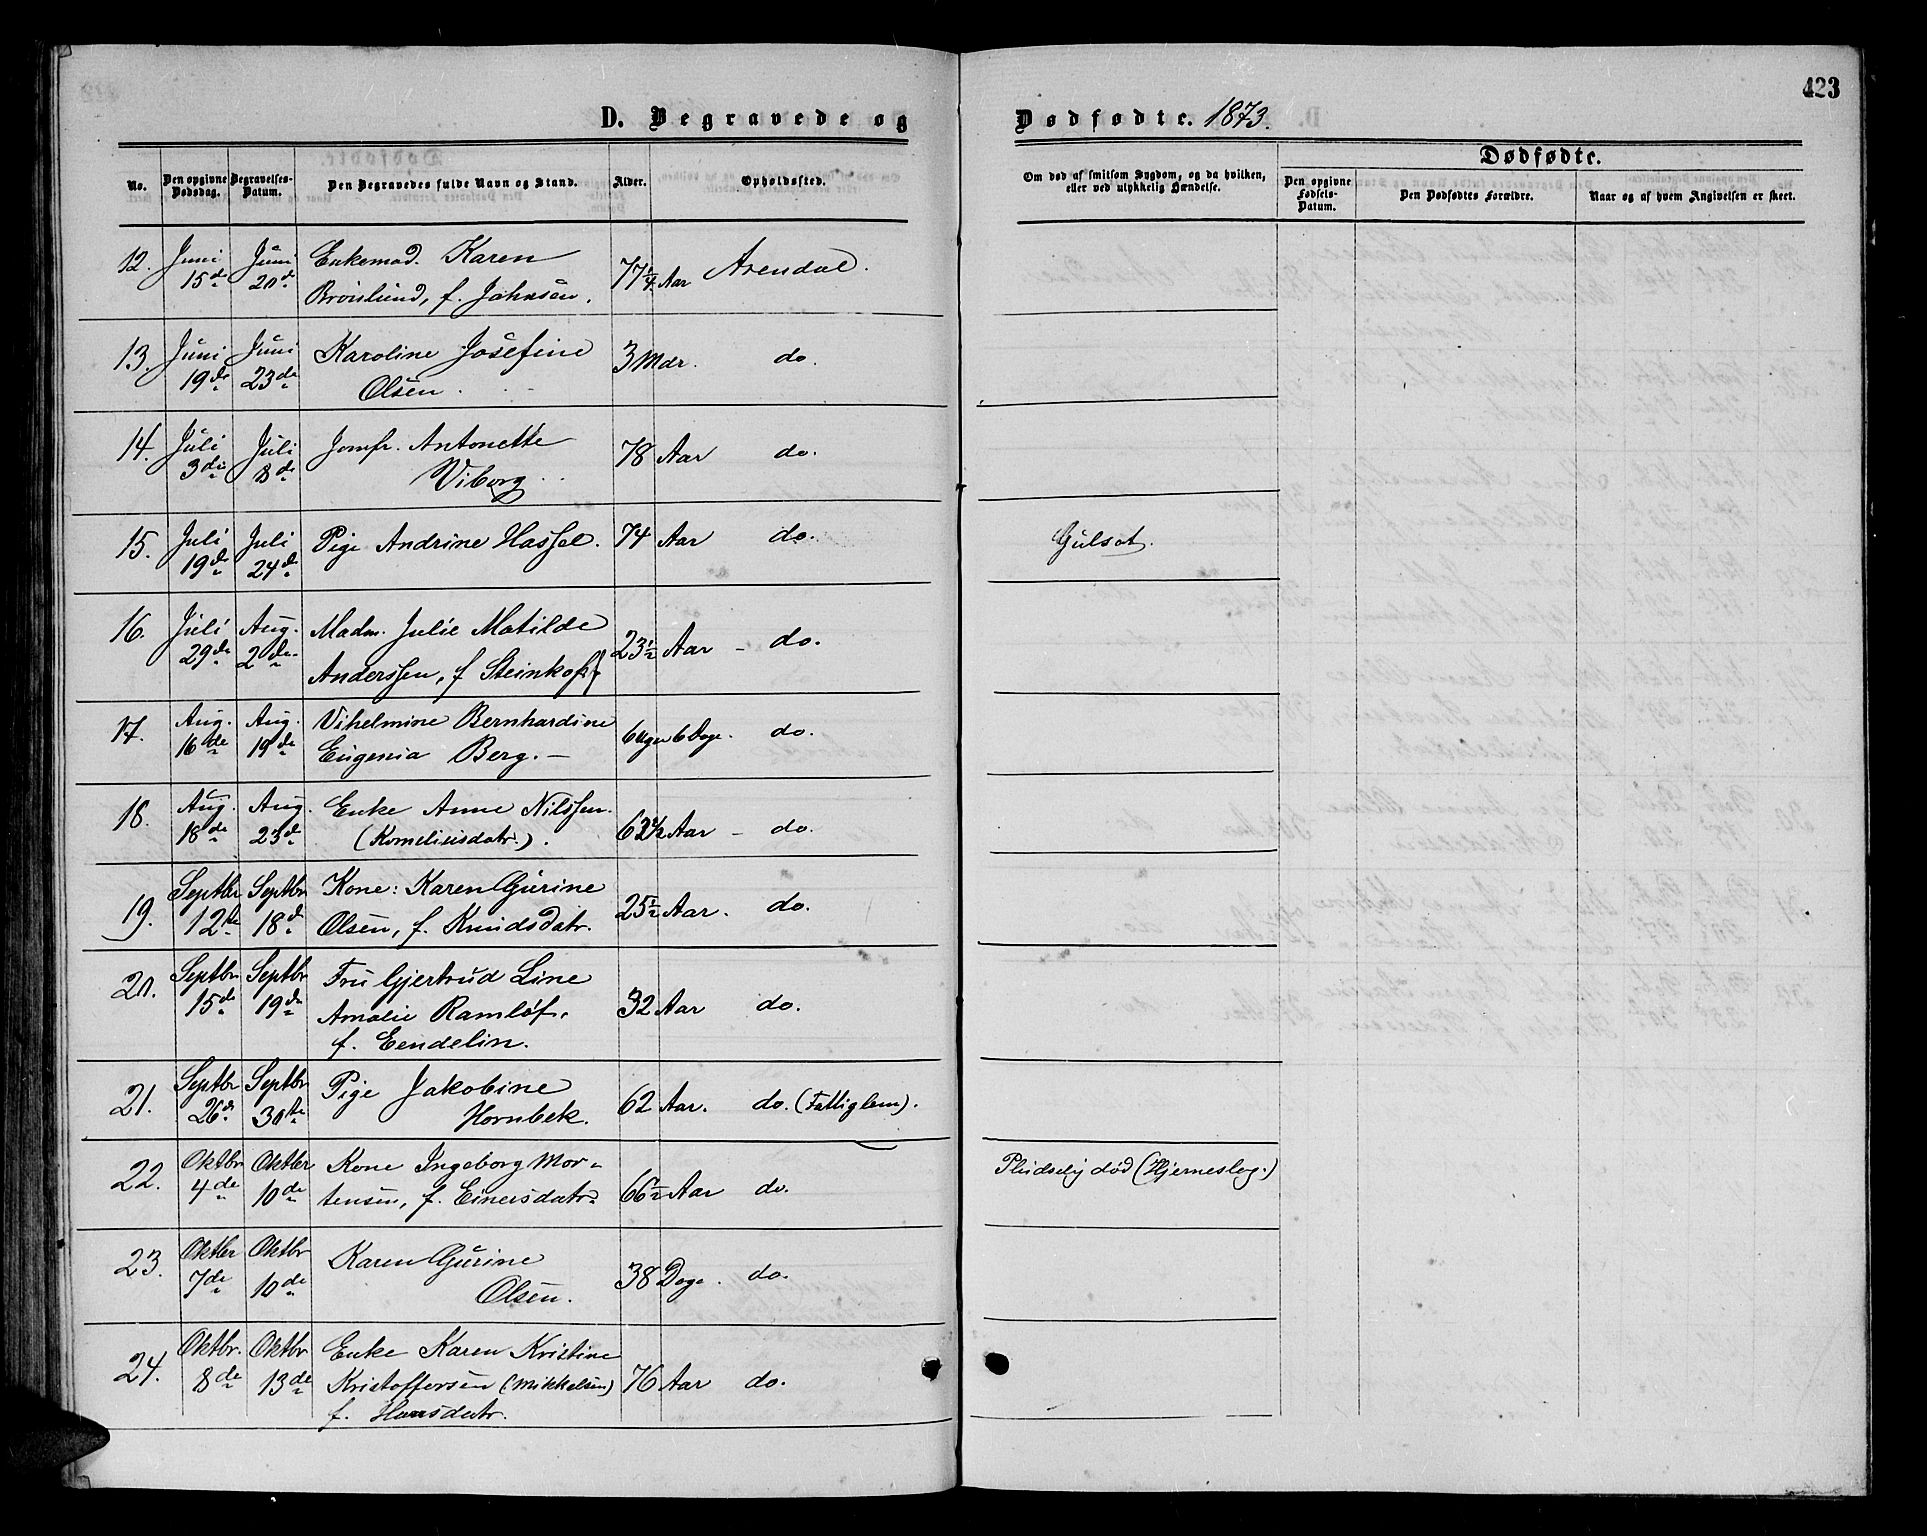 423
D. Begravede og Dødfødte. 1873.
No.
Den opgivne Dødsdag.
Begravelses-Datum.
Den Begravedes fulde Navn og Stand.
Alder.
Opholdssted.
Om død af smitsom Sygdom, og da hvilken, eller ved ulykkelig Hændelse.
Dødfødte.
Den opgivne Fødsels-Datum.
Den Dødfødtes Forældre.
Naar og af hvem Angivelsen er skeet.
12. Juni 15de Juni 20de Enkemad. Karen 77 1/4 Aar Arendal.
f. Johnsen.
13. Juni 19de Juni 23de Karoline Josefine 3 Mdr. do.
Olsen.
14. Juli 3die Juli 8de Jomfr. Antonette 78 Aar do.
Viborg
15. Juli 19de Juli 24de Pige Andrine Hassel. 74 Aar do. Gulsot.
16. Juli 29de Aug. 2den Madm. Julie Matilde 23 1/2 Aar – do.
Anderssen, f Steinkopf
17. Aug. 16de Aug. 19de Vihelmine Bernhardine 6 Uger 6 Dage. do.
Eugenia Berg. –
18. Aug. 18de Aug. 23de Enke Anne Nilssen. 62 1/2 Aar – do.
(Korneliusdatr.).
19. Septbr 12te Septbr 18de Kone: Karen Gurine 25 1/2 Aar. do.
Olsen, f. Knudsdatr.
20. Septbr 15de Septbr 19de Fru Gjertrud Line
Amalie Ramløf, 32 Aar do.
f. Eendelin.
21. Septbr 26de Septbr 30te Pige Jakobine
Hornbek. 62 Aar. do. (Fattiglem).
22. Oktbr 4de Oktbr 10de Kone Ingeborg Mor-
tensen, f. Einersdatr. 66 1/2 Aar do. Pludselig død (Hjerneslag.)
23. Oktbr 7de Oktbr 10de Karen Gurine
Olsen. 38 Dage. do.
24. Oktbr. 8de Oktbr 13de Enke Karen Kristine
Kristoffersen (Mikkelsen) 76 Aar do.
f. Hansdatr.